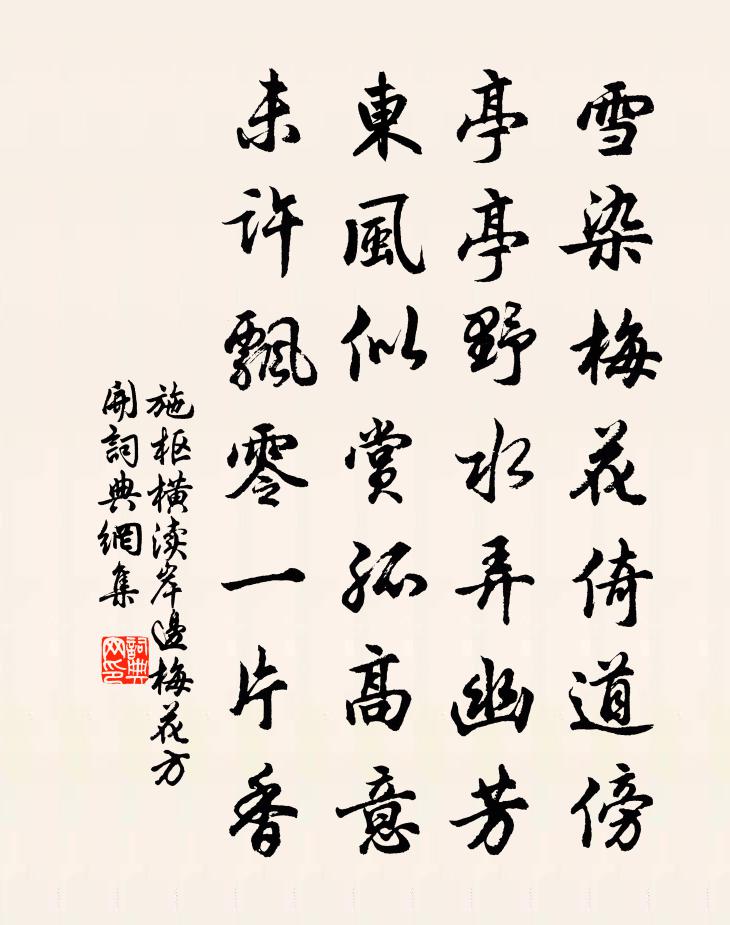 雪染梅花倚道傍
亭亭野水弄幽芳
東風似賞孤高意
未許飄零一片香
施枢橫渎岸邊梅花方
開詞典網集
詞典
网印